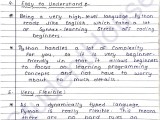 Easy to Understand :-
Being a very high-level language Python
reads like English, which takes a lot
of syntax-learning stress off coding
beginners.
Python handles a lot of complexity
for you, so it is beginner-
friendly in that it allows beginners
to focus on learning programming
concepts and not have to worry
about too much details.
Very Flexible :-
As a dynamically typed language,
Python is really flexible. This means
there are no hard